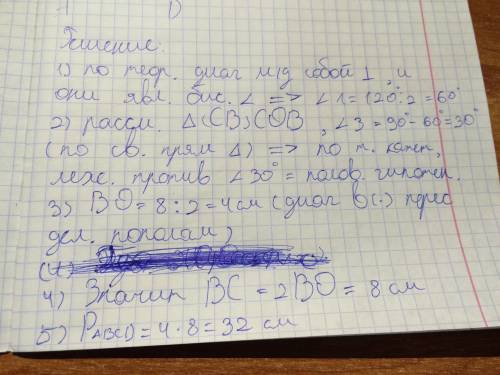 1)
Решение.
1) по теор. диаг м/д собой ⊥, и
они явл. бис. ∠ => ∠1=120°:2=60°
2) рассм. Δ(CB)COB, ∠3=90°-60°=30°
(по св. прям Δ) => по т. катет,
леж. против ∠30° = полов. гипотен.
3) BO=8:2=4см (диаг в(·) перес
дел. пополам)
4) Значит BC=2BO=8 см
5) PABCD=4·8=32 см